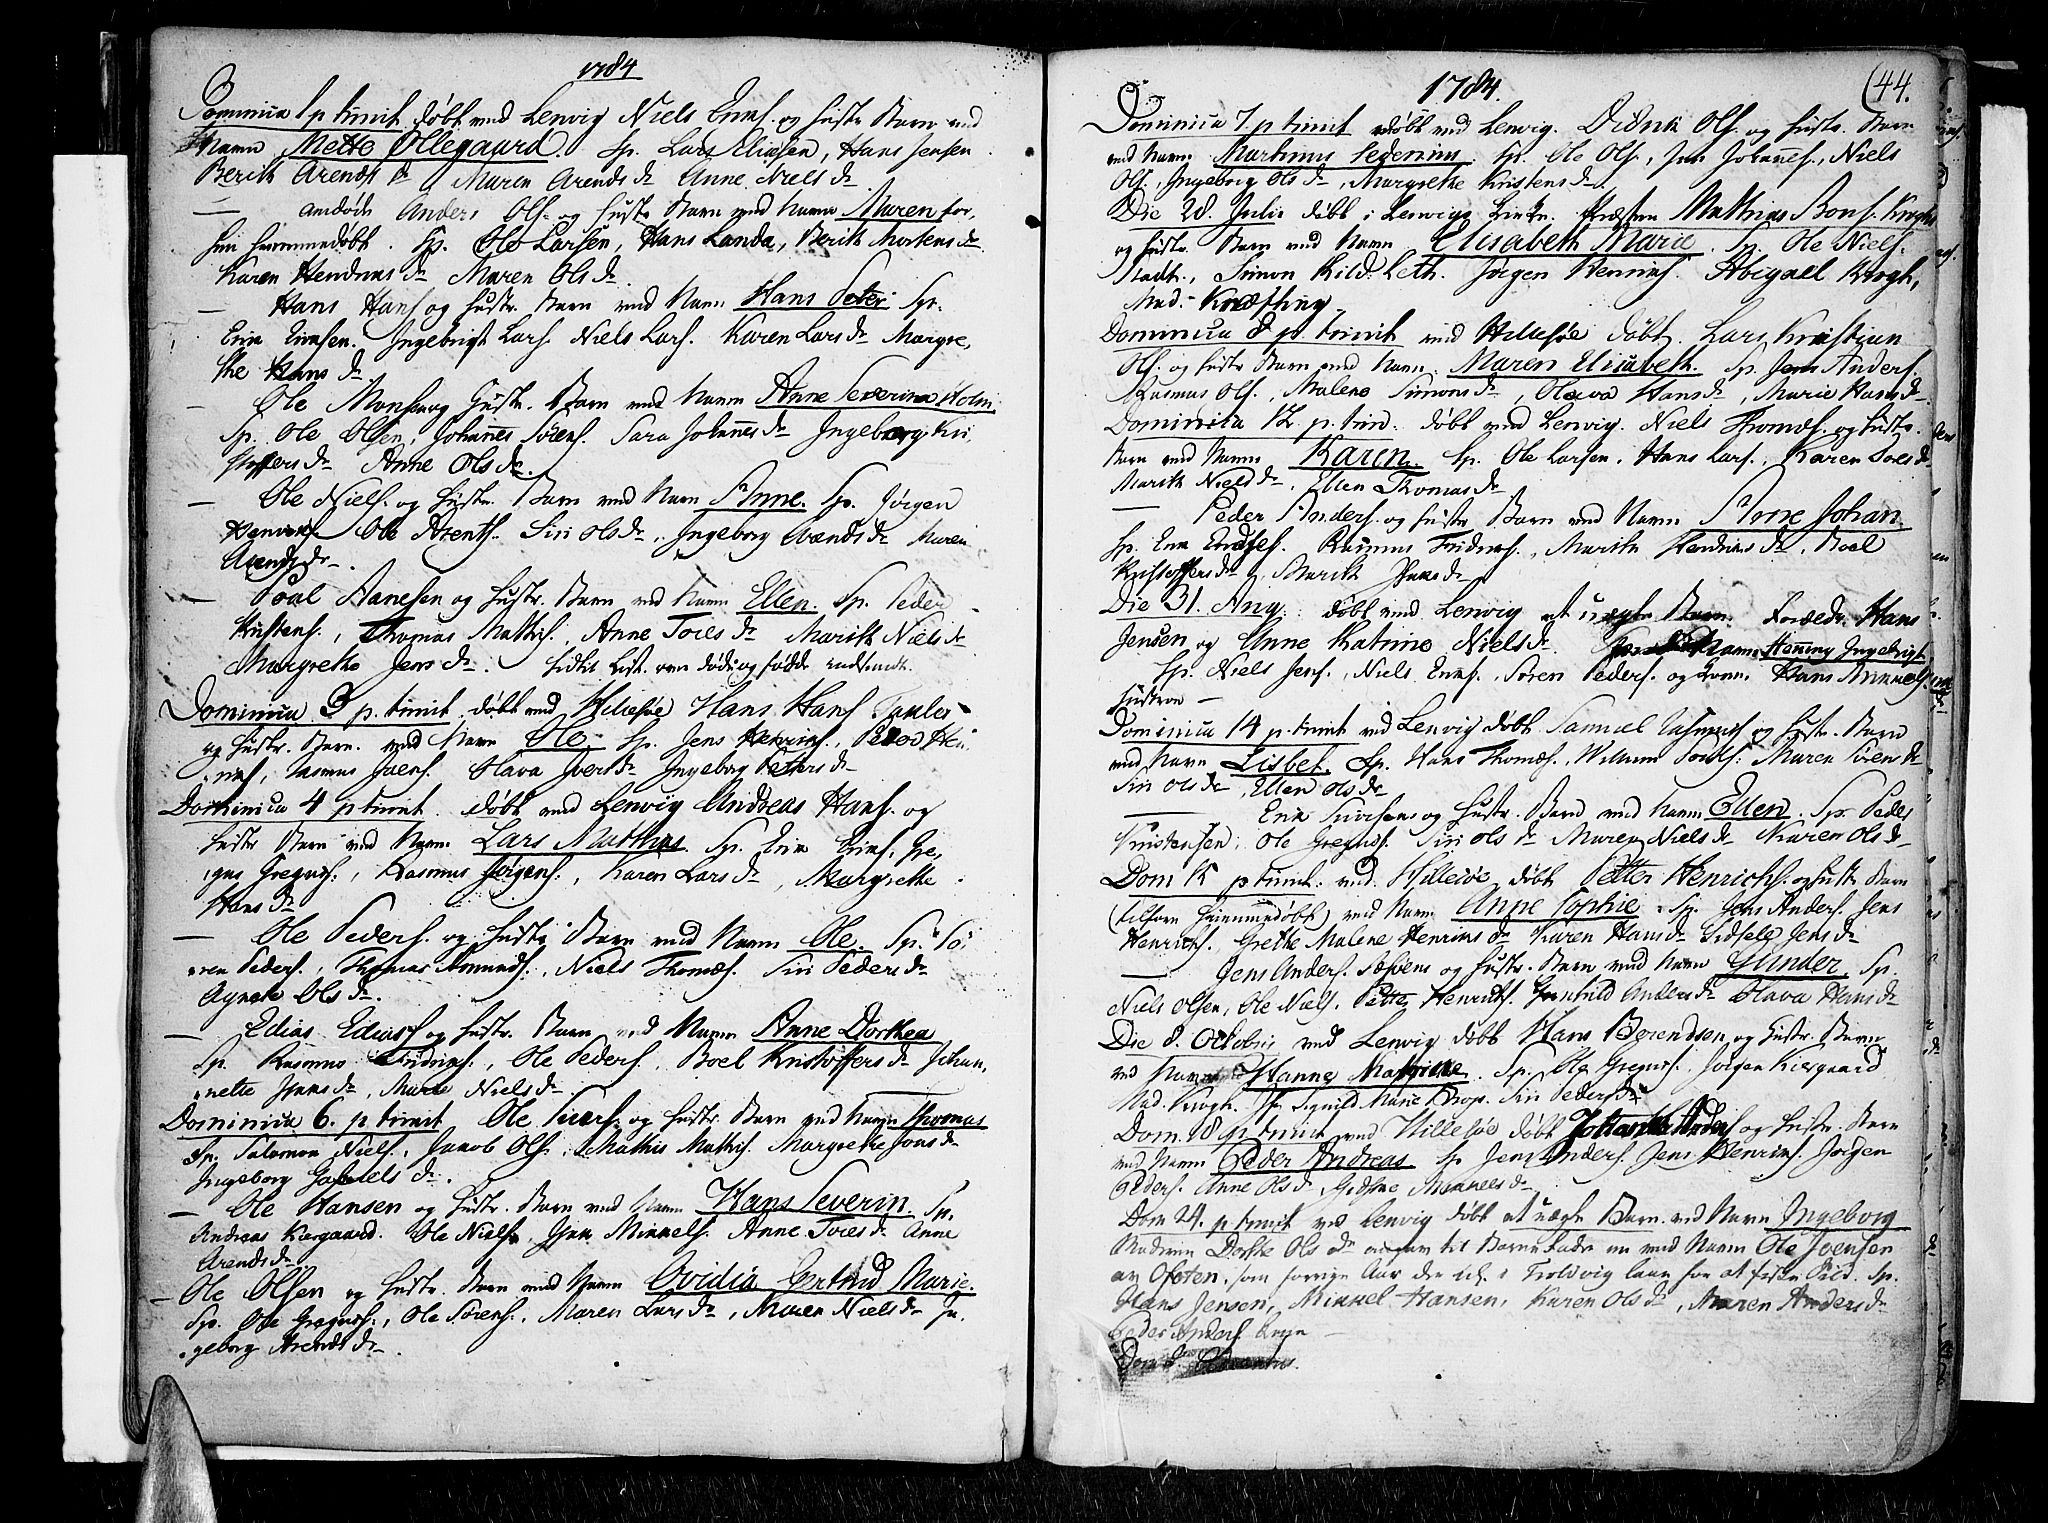 1784
Dominica 1 p trinit døbt ved Lenvig Niels Erichs. og Hustr. Barn ved
Navn Mette Ollegaard. Sp. Lars Eliasen, Hans Jensen
Berith Arends dr Maren Arends dr Anne Niels dr
— Anders Ols. og Hustr. Barn ved Navn Maren for,
hen hiemmedøbt. Sp. Ole Larsen, Hans Landa, Berith Mortens dr
Karen Hendrics dr Maren Ols dr.
— Hans Hans. og Hustr. Barn ved Navn Hans Peter Sp.
Erik Ericsen. Ingebrigt Lars. Niels Lars. Karen Lars dr Margre,
the Hans dr
— Ole Monsen og Hustr. Barn ved Navn Anne Severina Holm
Sp. Ole Olsen, Johannes Sørens. Sara Johannes dr Ingeborg Kri
stoffers dr Anne Ols dr.
— Ole Niels. og Hustr. Barn ved Navn Anne. Sp. Jørgen
Henrichs. Ole Arents. Siri Ols dr, Ingeborg Arends dr Maren
Arends dr.
— Poul Hansen og Hustr. Barn ved Navn Ellen. Sp. Peder
Kristens., Thomas Mathis., Anne Tores dr Marith Niels dr
Margrethe Jens dr. List over døde og fødde indsendt.
Dominica 3 p. trinit. døbt ved Hillesøe Hans Hans.
og Hustr. Barn ved Navn Ole Sp. Jens Henrics., Peder Hen
rics, Rasmus Joens. Olava Ivers dr Ingeborg Petters dr
Dominica 4 p trinit. døbt ved Lenvig Andreas Hans. og
Hustr Barn ved Navn Lars Mathias Sp. Erik Erics, Gre,
gus Gregus., Rasmus Jørgens., Karen Lars dr, Margrethe
Hans dr
— Ole Peders. og Hustr. Barn ved Navn Ole. Sp. Sø,
ren Peders., Thomas Amunds., Niels Thomæs. Siri Peders dr
Agnete Ols dr.
— Edias Edias. og Hustr. Barn ved Navn Anne Dorthea
Sp. Rasmus Fridrics., Ole Peders., Boel Kristoffers dr Johan,
nette Hans dr, Marie Niels dr.
Dominica 6. p. trinit Ole Ivers. og Hustr Barn ved Navn Thomas
Sp. Salomon Niels., Jacob Ols., Mathis Mathis. Margrethe Jons dr
Ingeborg Gabriels dr.
— Ole Hansen og Hustr. Barn ved Navn Hans Severin. Sp.
Andreas Kiergaard. Ole Niels., Hans Mikkels. Anne Tores dr Anne
Arends dr
— Ole Olsen og Hustr. Barn ved Navn Ovidia Gertrud Marie.
Sp. Ole Gregus., Ole Sørens., Maren Lars dr, Maren Niels dr In,
geborg Arends dr.
1784.
(44.
Dominica 7 p trinit døbt ved Lenvig. Didrik Ols. og Hustr. Barn
ved Navn Martinus Pederius. Sp. Ole Ols., Jon Johannes., Niels
Ols., Ingeborg Ols dr, Margrethe Kristens dr.
Die 28. Julii døbt i Lenvigs Kirke. Præsten Mathias Bons. Kroghs
og Hustr. Barn ved Navn Elisabeth Marie. Sp. Ole Niels.
Simon Kild. Leth. Jørgen Henrics. Abigael Krogh,
Mad. Kræfting
Dominica 8 p. trinit ved Hillesøe døbt. Lars Kristian
Ols. og Hustr Barn ved Navn. Maren Elisabeth. Sp. Jens Anders.
Rasmus Ols., Malene Simons dr, Olava Hans dr, Marie Hans dr.
Dominica 12. p. trin. døbt ved Lenvig. Niels Thomæs. og Hustr.
Barn ved Navn Karen. Sp. Ole Larsen, Hans Lars., Karen Tores dr
Marith Niels dr, Ellen Thomas dr
— Peder Anders. og Hustr Barn ved Navn Anne Johan.
Sp. Erik Rasmus Fridrics., Marith Hendrics dr, Boel
Kristoffers dr, Marith Hans dr
Die 31. Aug: døbt ved Lenvig et uægte Barn. Foræld: Hans
Jensen og Anne Katrine Niels dr. Navn Henning Ingebrigt
Sp. Niels Jens., Niels Erics., Søren Peders. og Kone. Hans Mikkels.
Hustrue —
Dominica 14 p trinit ved Lenvig døbt Samuel Rasmus. og Hustr. Barn
ved Navn Lisbet. Sp. Hans Thomæs. Wilhelm Maren Sørens dr
Siri Ols dr, Ellen Ols dr
— Erik Sivertsens og Hustr. Barn ved Navn Ellen. Sp. Peder
Kristensen, Ole Gregus. Siri Ols dr Maren Niels dr Karen Ols dr
Dom 15 p trinit. ved Hillesøe døbt Petter Henrichs. og Hustr Barn
(tilforn hiemmedøbt) ved Navn Anne Sophie. Sp. Jens Anders. Jens
Henrichs. Grethe Malene Henrics dr Karen Hans dr Sidsele Jens dr
— Jens Anders. og Hustr. Barn ved Navn Gunder. Sp.
Niels Olsen, Ole Niels. Petter Henrichs. Gunhild Anders dr Olava Hans dr
Die 8. Octobris ved Lenvig døbt Hans Berendsen og Hustr. Barn
ved Navn Hanne Sp. Ole Gregus. Jørgen Kiergaard
Mad. Krogh. Jfr Sigvild Marie Siri Peders dr
Dom. 18 p trinit ved Hillesøe døbt Anders og Hustr. Barn
ved Navn Peder Andreas Sp Jens Anders. Jens Henrics. Jørgen
Peders. Anne Ols dr Mikkels dr
Dom 24. p trinit ved Lenvig døbt et uægte Barn. ved Navn Ingeborg
Moderen Dorthe Ols dr angav til Barnefader en ved Navn Ole Joensen
av Ofoten, som forrige Aar i Troldvig laae for at fiske Sild. Sp.
Hans Jensen, Mikkel Hansen, Karen Ols dr, Maren Anders dr
Peder Anders. —